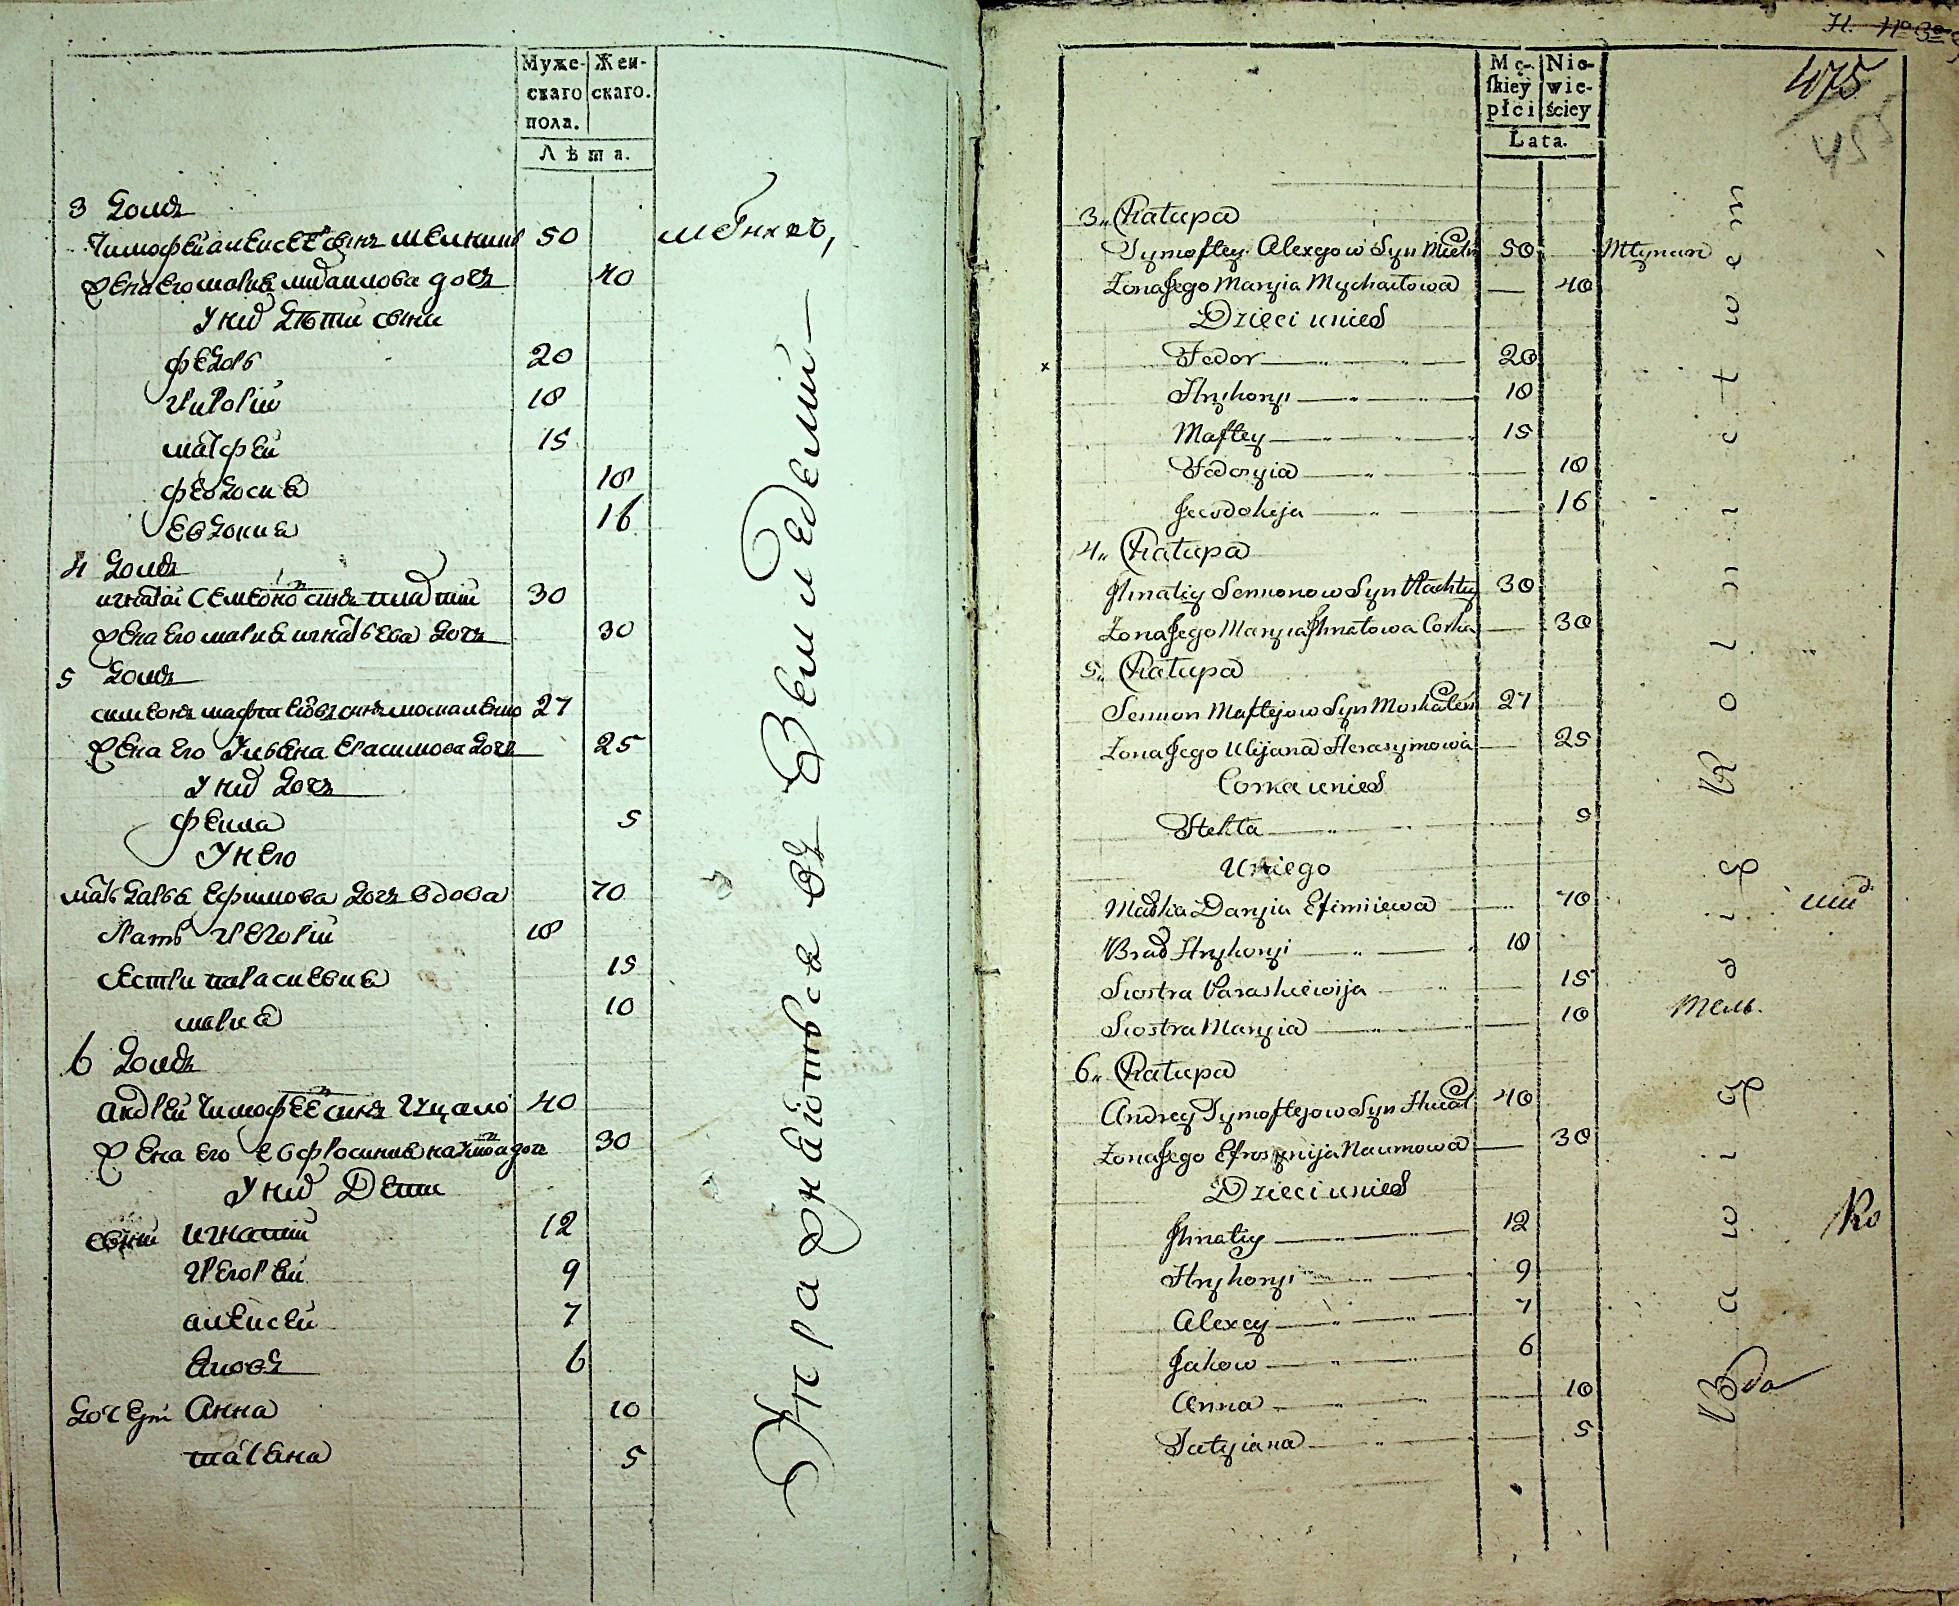 Муже-
скаго
пола.
Жен-
скаго.
Лѣта.
3 Домъ
Тимофей алексеевъ сынъ мелник 50 мелникъ,
жена его мария михайлова дочь 40
У них дѣти сыни
федоръ 20
григорій 18
матфей 15
феодосия 18
евдокия 16
4 Домъ
игнатій семеновъ синъ 30
жена его мария игнатьева дочь 30
5 Домъ
симеонъ матфеевъ синъ москаленко 27
жена его Ульяна Герасимова дочь 25
У них дочь
фекла 5
У него
мать дарья ефимова дочь вдова 70
братъ григорій 18
сестри параскевия 15
мария 10
6 Домъ
андрей тимофеевъ синъ 40
жена его евфросиния наумова дочь 30
У них Дети
сыни игнатий 12
григорей 9
алексей 7
яковъ 6
дочери Анна 10
татяна 5
Упражняютьса въ Земледелии
Н. № 30
475
Mę-
skiey
płci
Nie-
wie-
ściey
Lata.
3. Chałupa
Tymoftey Alexejow Syn Mieln 50 Młynarz
Zona Jego Maryia Mychaiłowa — 40
Dzieci unich
Fedor 20
Hryhoryi 18
Maftey 15
Fedosyia 18
Jewdokija 16
4. Chałupa
Ihnatiy Semionow Syn 30
Zona Jego Maryia Ihnatowa Corka — 30
5. Chałupa
Semion Maftejow Syn Moskalen 27
Zona Jego Ulijana Herasymowa — 25
Corka unich
Thekla 5
Uniego
Matka Daryia Efimiewa 70
Brat Hryhoryi 18
Siostra Paraskiewija 15
Siostra Maryia 10
6. Chałupa
Andrey Tymoftejow Syn 40
Zona Jego Efrosynija Naumowa — 30
Dzieci unich
Ihnatiy 12
Hryhoryi 9
Alexey 7
Jakow 6
Anna 10
Tatyiana 5
Zabawiaią się Rolnictwem
тель.